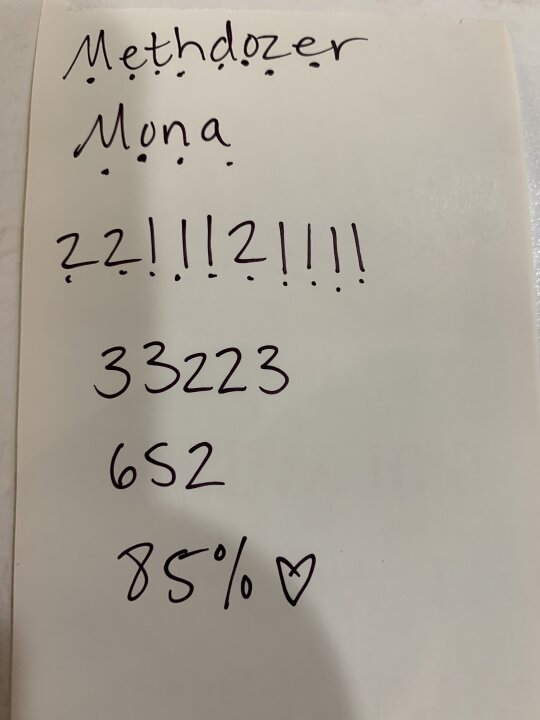 Methdozer
Mona
2211121111
33223
652
85% ♡